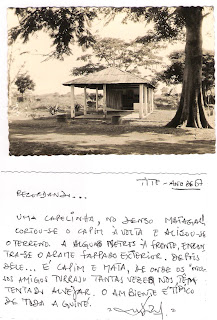 TITE - ANO DE 67
RECORDANDO...
UMA CAPELINHA, NO DENSO MATAGAL!
CORTOU-SE O CAPIM À VOLTA E ALISOU-SE
O TERRENO. A ALGUNS METROS À FRENTE, ENCON
TRA-SE O ARAME FARPADO EXTERIOR. DEPOIS
DELE... É CAPIM E MATA, DE ONDE OS
SOS AMIGOS TURRAS TANTAS VEZES NOS TÊM
TENTADO ALVEJAR. O AMBIENTE É TÍPICO
DE TODA A GUINÉ.